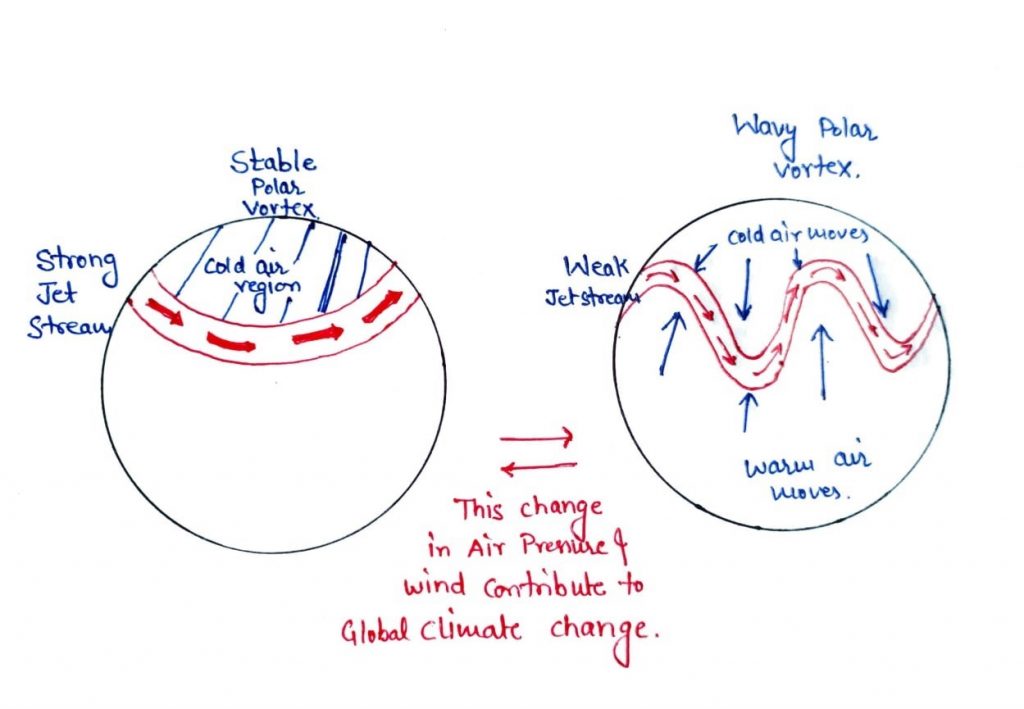 Stable
Polar
Vortex.
Strong
Jet
Stream
Cold air
region
Wavy Polar
vortex.
Weak
Jetstream
cold air moves
warm air
moves.
This change
in Air Pressure &
wind contribute to
Global Climate change.